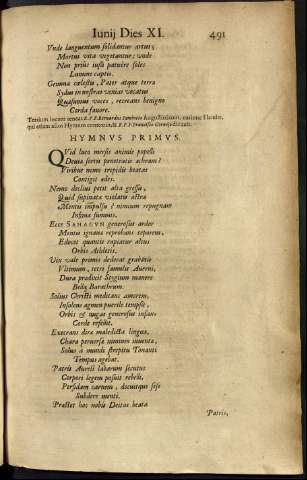 Iunij Dies XI. 491
Vnde languentum solidantur artus;
Mortua vita vegetantur; vnde
Non priùs iussi patuere soles
Lumine captis.
Gemma cœlestis, Pater atque terra
Sydus in nostras venias vocatus
Quæsumus voces, recreans benigno
Corda fauore.
Tertium locum tenens R.P.F. Bernardus Augustinianus,
qui etiam alios Hymnos
HYMNVS PRIMVS.
QVid loco mersis animis populi
Deuia fortis penetratis achrum?
Viribus nemo trepidis beatas
Contigit ædes.
Nemo decliues petit alta gressu,
Quid supinata violatis astra
Mentis impulsu? nimium repugnant
Infima summis.
Ecce SAHAGVN generosus ardor
Mentis ignauos reprobans terpores,
Edocet quantis rapiatur altus
Orbis Athletis.
Vix vale primis dederat grabatis
Vltimum, tetra famulus Auerni,
Dura prodixit Stygium mouere
Bella Barathrum.
Solius Christi meditans amorem,
Insolens agmen puerile templo,
Orbis & nugas generosus insans
Corde refellit.
Execrans dira maledicta lingua,
Chara peruersa nimium iuuenta,
Solus à mundi strepitu Tonanti
Tempus agebat.
Patris Aureli labarum secutus
Corpori legem posuit rebelli,
Persidam carnem, docuitque sese
Subdere menti.
Præstet hoc nobis Deitas beata
Patris,